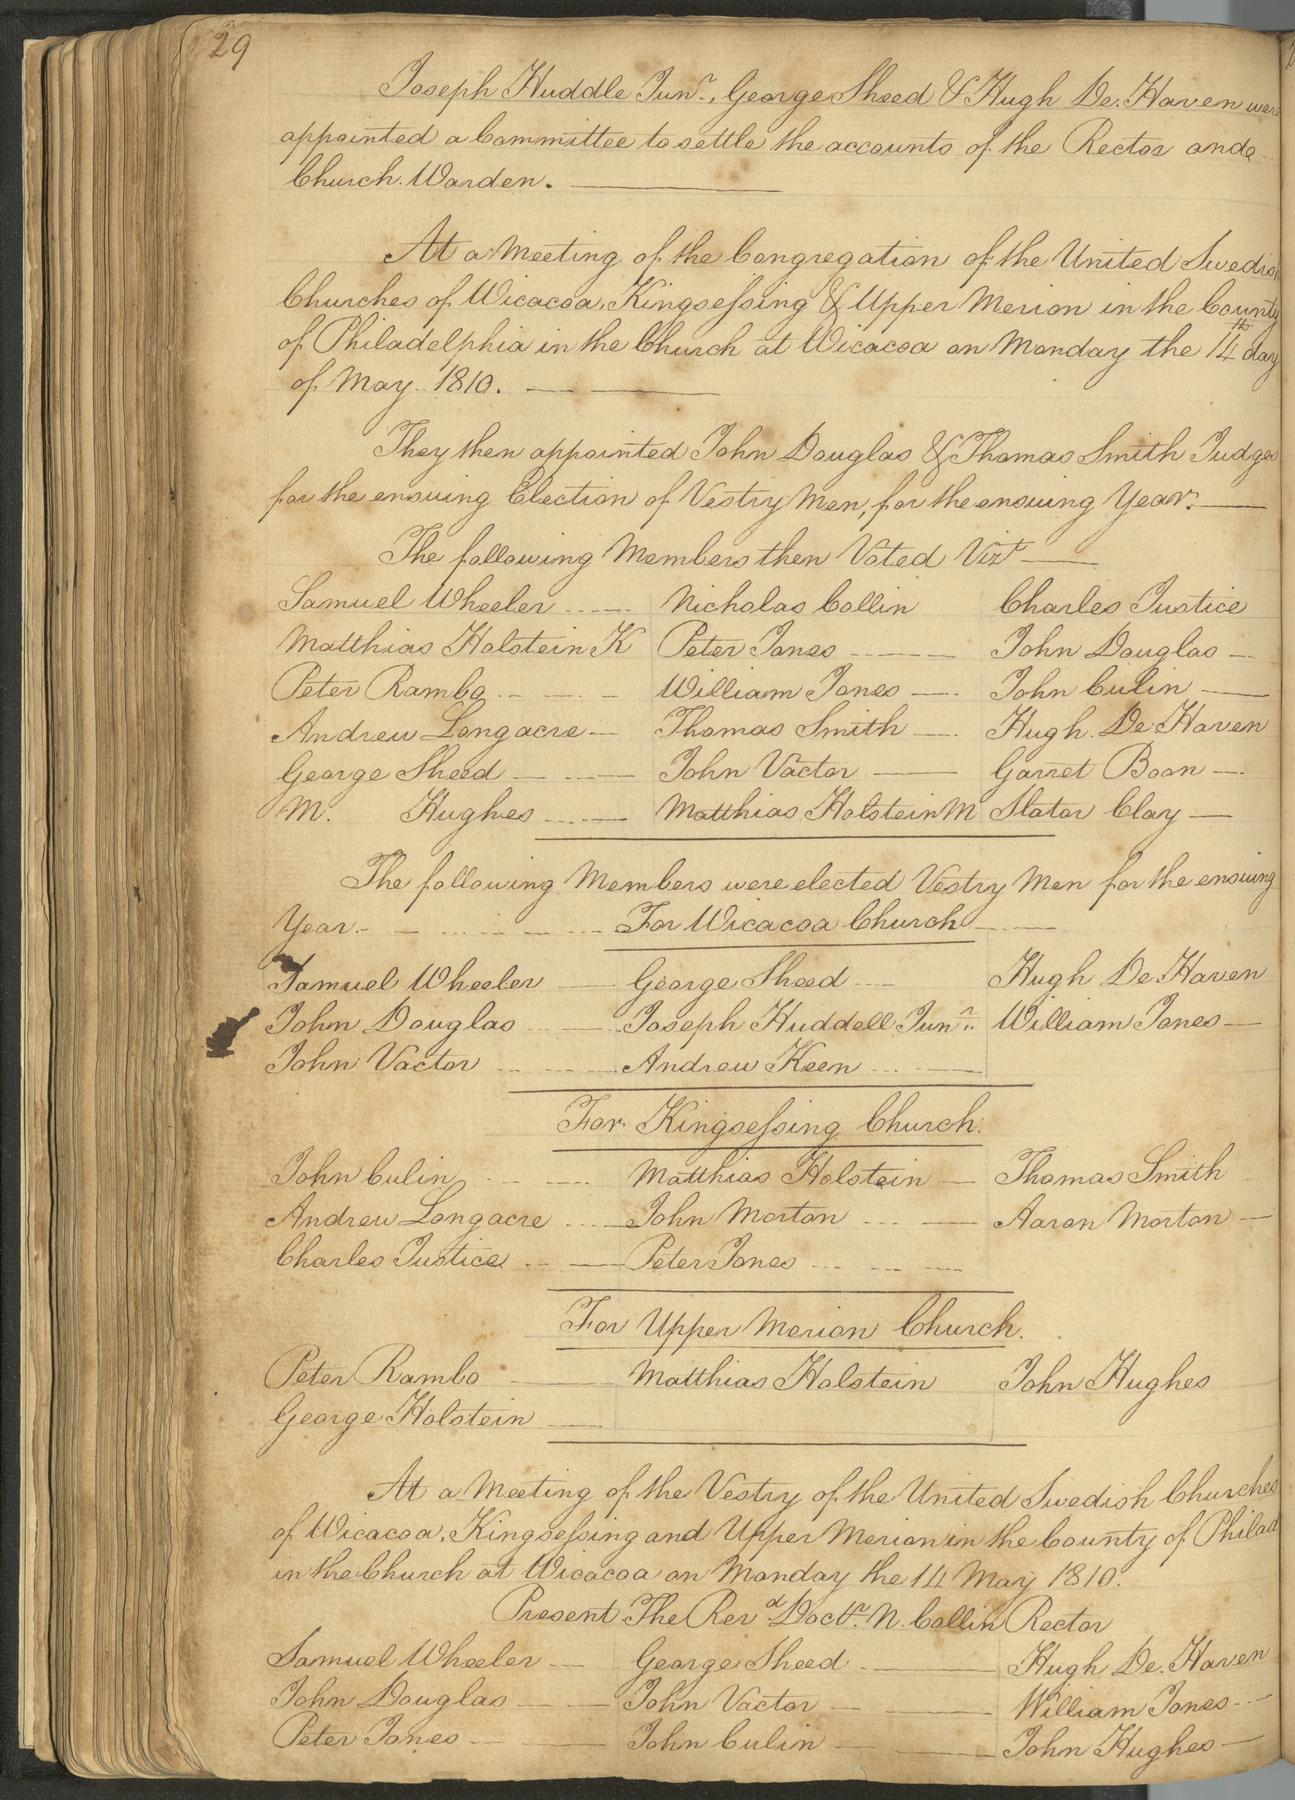 29
Joseph Huddle Junr., George Sheed & Hugh De. Haven were
appointed a Committee to settle the accounts of the Rector and
Church. Warden.
At a Meeting of the Congregation of the United Swedis
Churches of Wicacoa, Kingsessing & Upper Merion in the County
of Philadelphia in the Church at Wicacoa on Monday the 14th day
of May 1810.
They then appointed John Douglas & Thomas Smith Judges
for the ensuing Election of Vestry Men, for the ensuing Year.
The following Members then Voted Vizt
Samuel Wheeler Nicholas Collin Charles Justice
Matthias Holstein K Peter Jones John Douglas
Peter Rambo William Jones John Culin
Andrew Longacre Thomas Smith Hugh. De Haven
George Sheed John Vactor Garret Boon
M. Hughes Matthias Holstein M Slator Clay
The following Members were elected Vestry Men for the ensuing
Year. For Wicacoa Church
Samuel Wheeler George Sheed Hugh De Haven
John Douglas Joseph Huddell Junr. William Jones
John Vactor Andrew Keen
For Kingsessing Church.
John Culin Matthias Holstein Thomas Smith
Andrew Longacre John Morton Aaron Morton
Charles Justice Peter Jones
For Upper Merion Church.
Peter Rambo Matthias Holstein John Hughes
George Holstein
At a Meeting of the Vestry of the United Swedish Churches
of Wicacoa, Kingsessing and Upper Merion in the County of Philad
in the Church at Wicacoa on Monday the 14 May 1810.
Present The Revd Doctr. N. Collin Rector
Samuel Wheeler George Sheed Hugh De. Haven
John Douglas John Vactor William Jones
Peter Jones John Culin John Hughes